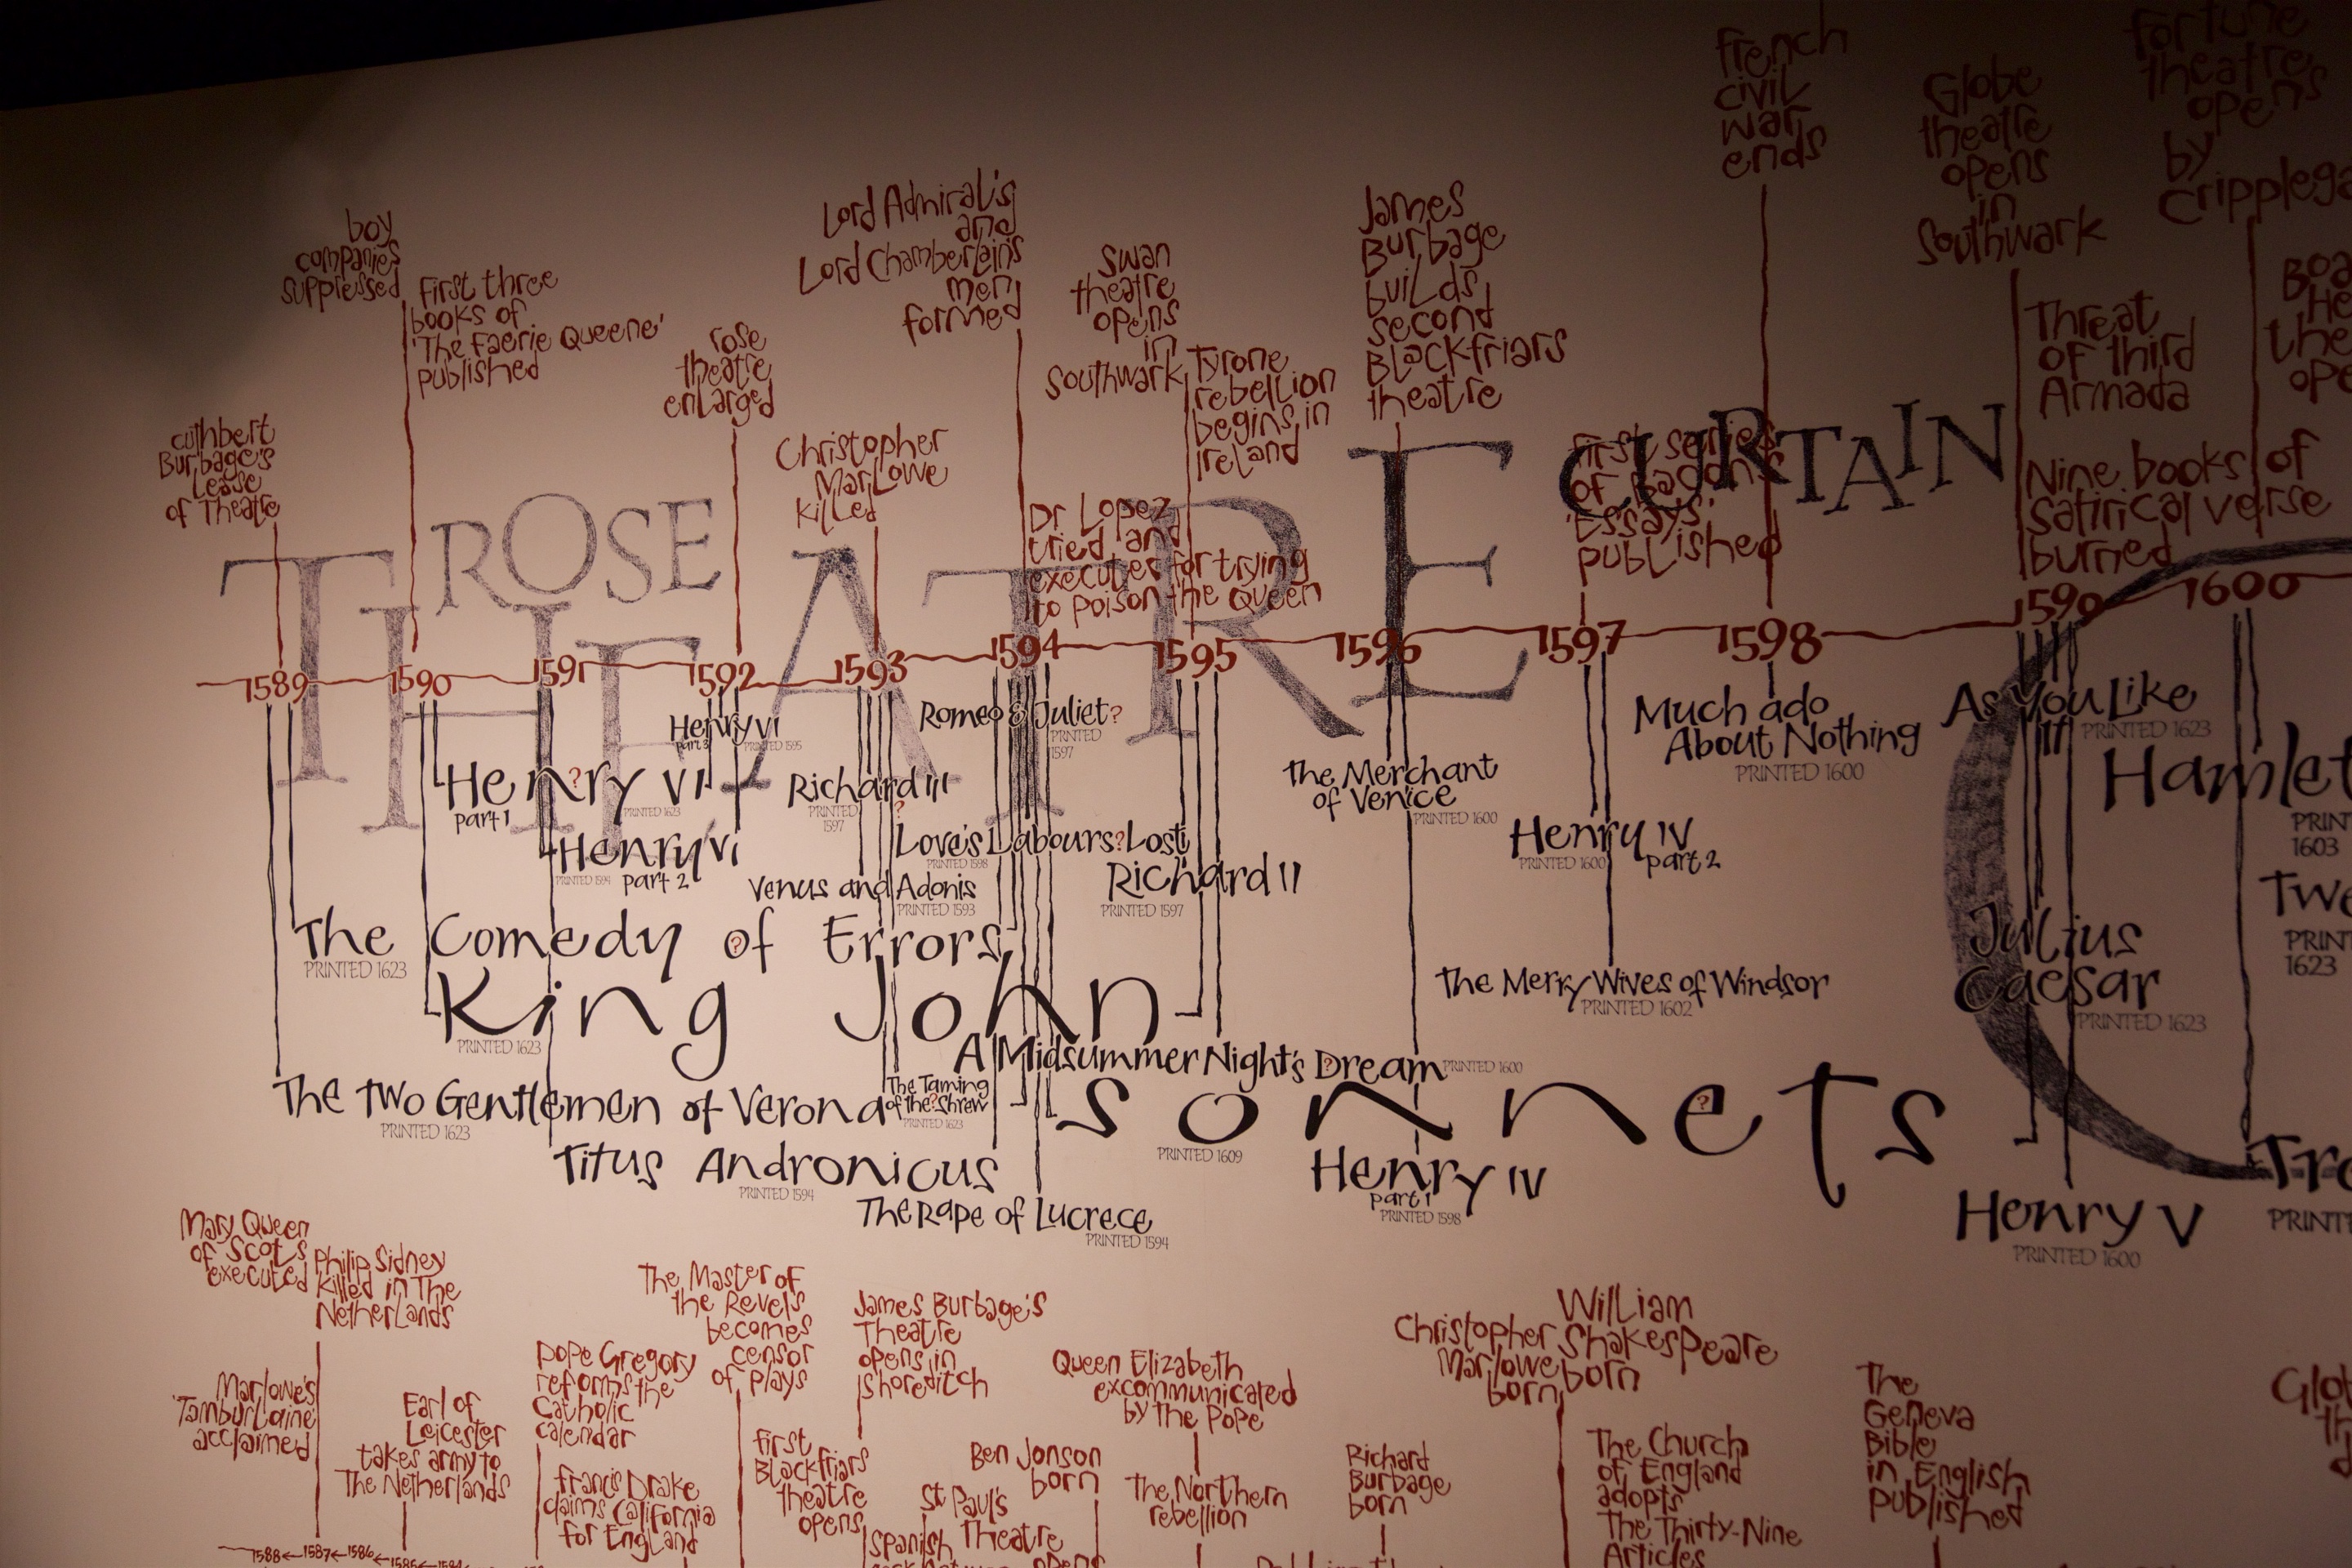 French
civil
war
ends
Globe
theatre
opens
in
Southwark
Fortune
theatre's
opens
by
boy
companies
suppressed
First three
books of
'The Faerie Queene'
published
rose
theatre
enlarged
Lord Admiral's
and
Lord Chamberlain's
men
formed
Christopher
Marlowe
killed
Swan
theatre
opens
in
Southwark
Tyrone
rebellion
begins in
Ireland
James
Burbage
builds
second
Blackfriars
theatre
Threat
of third
Armada
Nine books of
Satirical verse
burned
cuthbert
Burbage's
Lease
of Theatre
Dr Lopez
tried and
executes for trying
to poison the Queen
First series
of Bacon's
'Essays'
published
ROSE
THEATRE
CURTAIN
1589 1590 1591 1592 1593 1594 1595 1596 1597 1598 1599 1600
Henry VI
part 3
PRINTED 1595
Romeo & Juliet?
PRINTED
1597
Much ado
About Nothing
PRINTED 1600
As You Like
It
PRINTED 1623
Hamlet
1603
Henry VI
part 1
?
PRINTED 1623
Richard III
PRINTED
1597
?
The Merchant
of Venice
PRINTED 1600
Henry VI
PRINTED 1594
part 2
Love's Labours? Lost
PRINTED 1598
Henry IV
PRINTED 1600
part 2
Venus and Adonis
PRINTED 1593
Richard II
PRINTED 1597
1623
The Comedy ? of Errors
PRINTED 1623
Julius
Caesar
PRINTED 1623
King John
PRINTED 1623
The Merry Wives of Windsor
PRINTED 1602
A Midsummer Night's Dream
?
PRINTED 1600
The Two Gentlemen of Verona
PRINTED 1623
The Taming
of the? Shrew
PRINTED 1623
Sonnets
?
PRINTED 1609
Titus Andronicus
PRINTED 1594
Henry IV
part 1
PRINTED 1598
The Rape of Lucrece
PRINTED 1594
Henry V
PRINTED 1600
Mary Queen
of Scots
executed
Philip Sidney
killed in The
Netherlands
The Master of
the Revels
becomes
censor
of plays
James Burbage's
Theatre
opens in
Shoreditch
Christopher
Marlowe
born
William
Shakespeare
born
Marlowe's
'Tamburlaine'
acclaimed
Earl of
Leicester
takes army to
The Netherlands
Pope Gregory
reforms the
Catholic
calendar
Queen Elizabeth
excommunicated
by the Pope
The
Geneva
Bible
in English
published
Francis Drake
claims California
for England
First
Blackfriars
theatre
opens
Ben Jonson
born
St Paul's
Theatre
opens
Spanish
The Northern
rebellion
Richard
Burbage
born
The Church
of England
adopts
The Thirty-Nine
Articles
1588 ← 1587 ← 1586 ← 1585 ← 1584